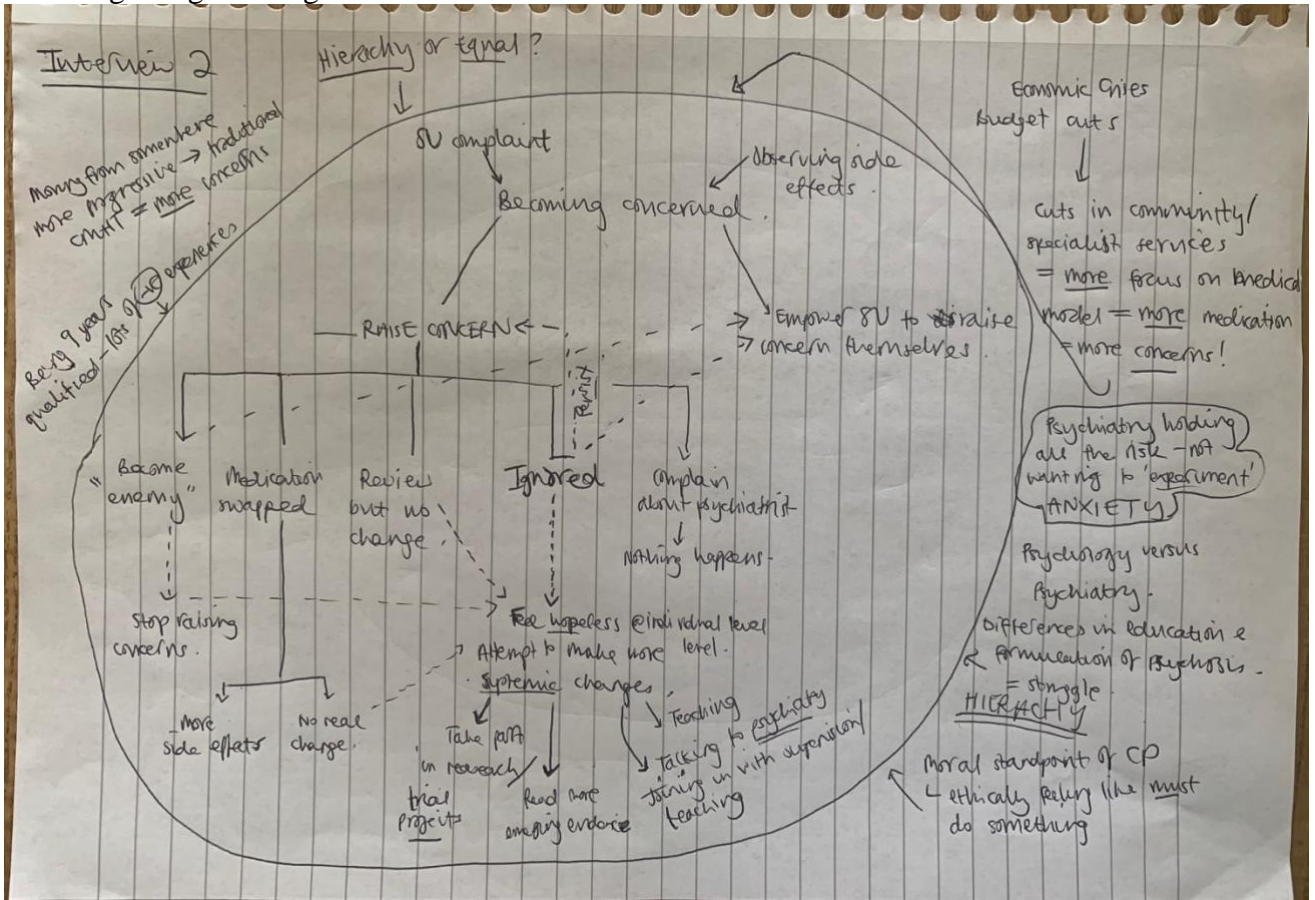 Interview 2
Hierachy or Equal?
Moving from somewhere
more progressive → traditional
CMHT = more concerns
Being 9 years
qualified - lots of -ve experiences
SU complaint
Observing side
effects.
Becoming concerned.
RAISE CONCERN
Empower SU to raise
concern themselves.
"Become
enemy"
Medication
swapped
Review
but no
change.
Ignored
Complain
about psychiatrist
Nothing happens
Stop raising
concerns.
more
side effects
No real
change.
Feel hopeless @individual level
Attempt to make more level.
systemic changes.
Take part
in research
trial
projects
Read more
emerging evidence
Teaching
Talking to psychiatry
Joining in with supervision/
teaching
Economic Cries
Budget cuts
Cuts in community/
specialist services
= more focus on medical
model = more medication
= more concerns!
Psychiatry holding
all the risk - not
wanting to 'experiment'
ANXIETY
Psychology versus
Psychiatry.
Differences in education &
formulation of Psychosis.
= struggle
HIERACHY
Moral standpoint of CP
ethically feeling like must
do something